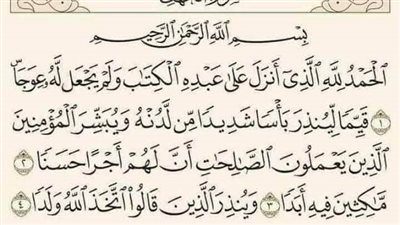 بِسْمِ اللَّهِ الرَّحْمَٰنِ الرَّحِيمِ
الْحَمْدُ لِلَّهِ الَّذِي أَنزَلَ عَلَىٰ عَبْدِهِ الْكِتَابَ وَلَمْ يَجْعَل لَّهُ عِوَجَا ۜ
١ قَيِّمًا لِّيُنذِرَ بَأْسًا شَدِيدًا مِّن لَّدُنْهُ وَيُبَشِّرَ الْمُؤْمِنِينَ
الَّذِينَ يَعْمَلُونَ الصَّالِحَاتِ أَنَّ لَهُمْ أَجْرًا حَسَنًا ٢
مَّاكِثِينَ فِيهِ أَبَدًا ٣ وَيُنذِرَ الَّذِينَ قَالُوا اتَّخَذَ اللَّهُ وَلَدًا ٤